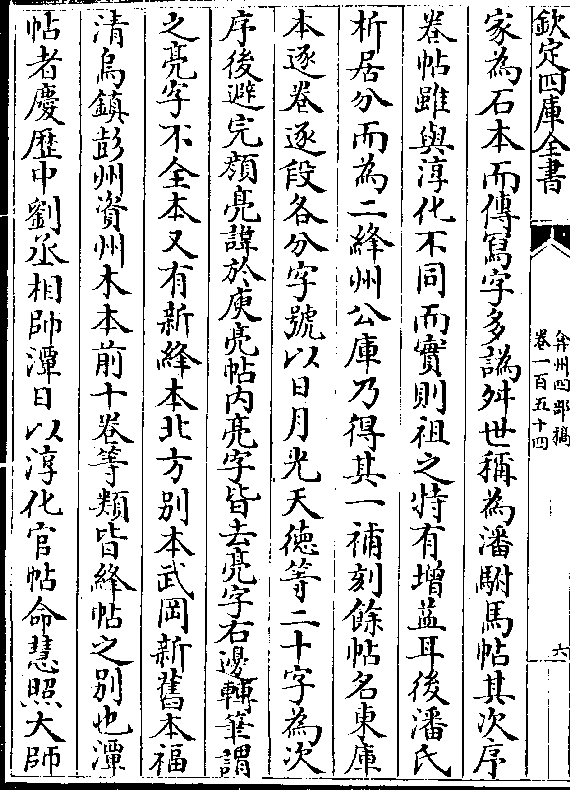 欽定四庫全書
弇州四部稿
卷一百五十四
六
家為石本而傳寫字多譌舛世稱為潘駙馬帖其次序
卷帖雖與淳化不同而實則祖之特有增益耳後潘氏
析居分而為二絳州公庫乃得其一補刻餘帖名東庫
本逐卷逐段各分字號以日月光天德等二十字為次
序後避完顏亮諱於庾亮帖內亮字皆去亮字右邊轉筆謂
之亮字不全本又有新絳本北方別本武岡新舊本福
清烏鎮彭州資州木本前十卷等類皆絳帖之別也潭
帖者慶歷中劉丞相帥潭日以淳化官帖命慧照大師